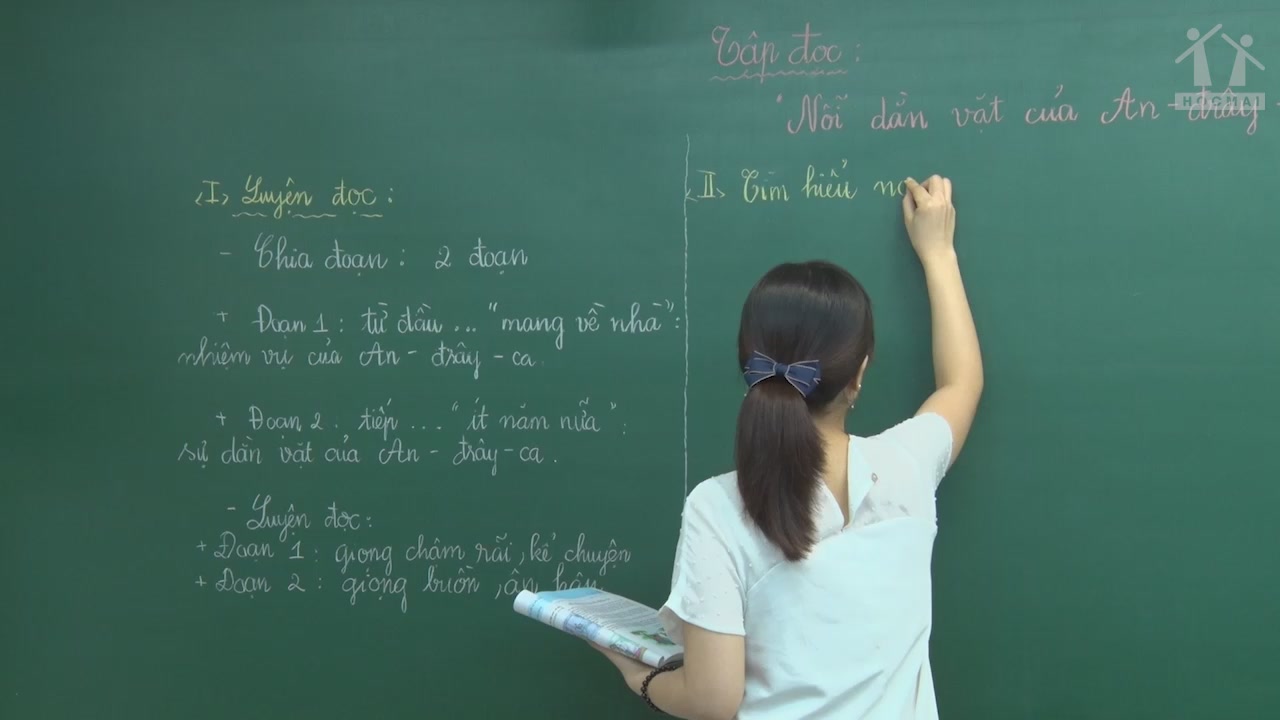 Tập đọc:
"Nỗi dằn vặt của An-đrây-
I, Luyện đọc:
- Chia đoạn: 2 đoạn
+ Đoạn 1: từ đầu ... "mang về nhà":
nhiệm vụ của An-đrây-ca.
+ Đoạn 2. tiếp ... "ít năm nữa":
sự dằn vặt của An-đrây-ca.
- Luyện đọc:
+ Đoạn 1: giọng chậm rãi, kể chuyện
+ Đoạn 2: giọng buồn, ân hận
II, Tìm hiểu
HOCMAI